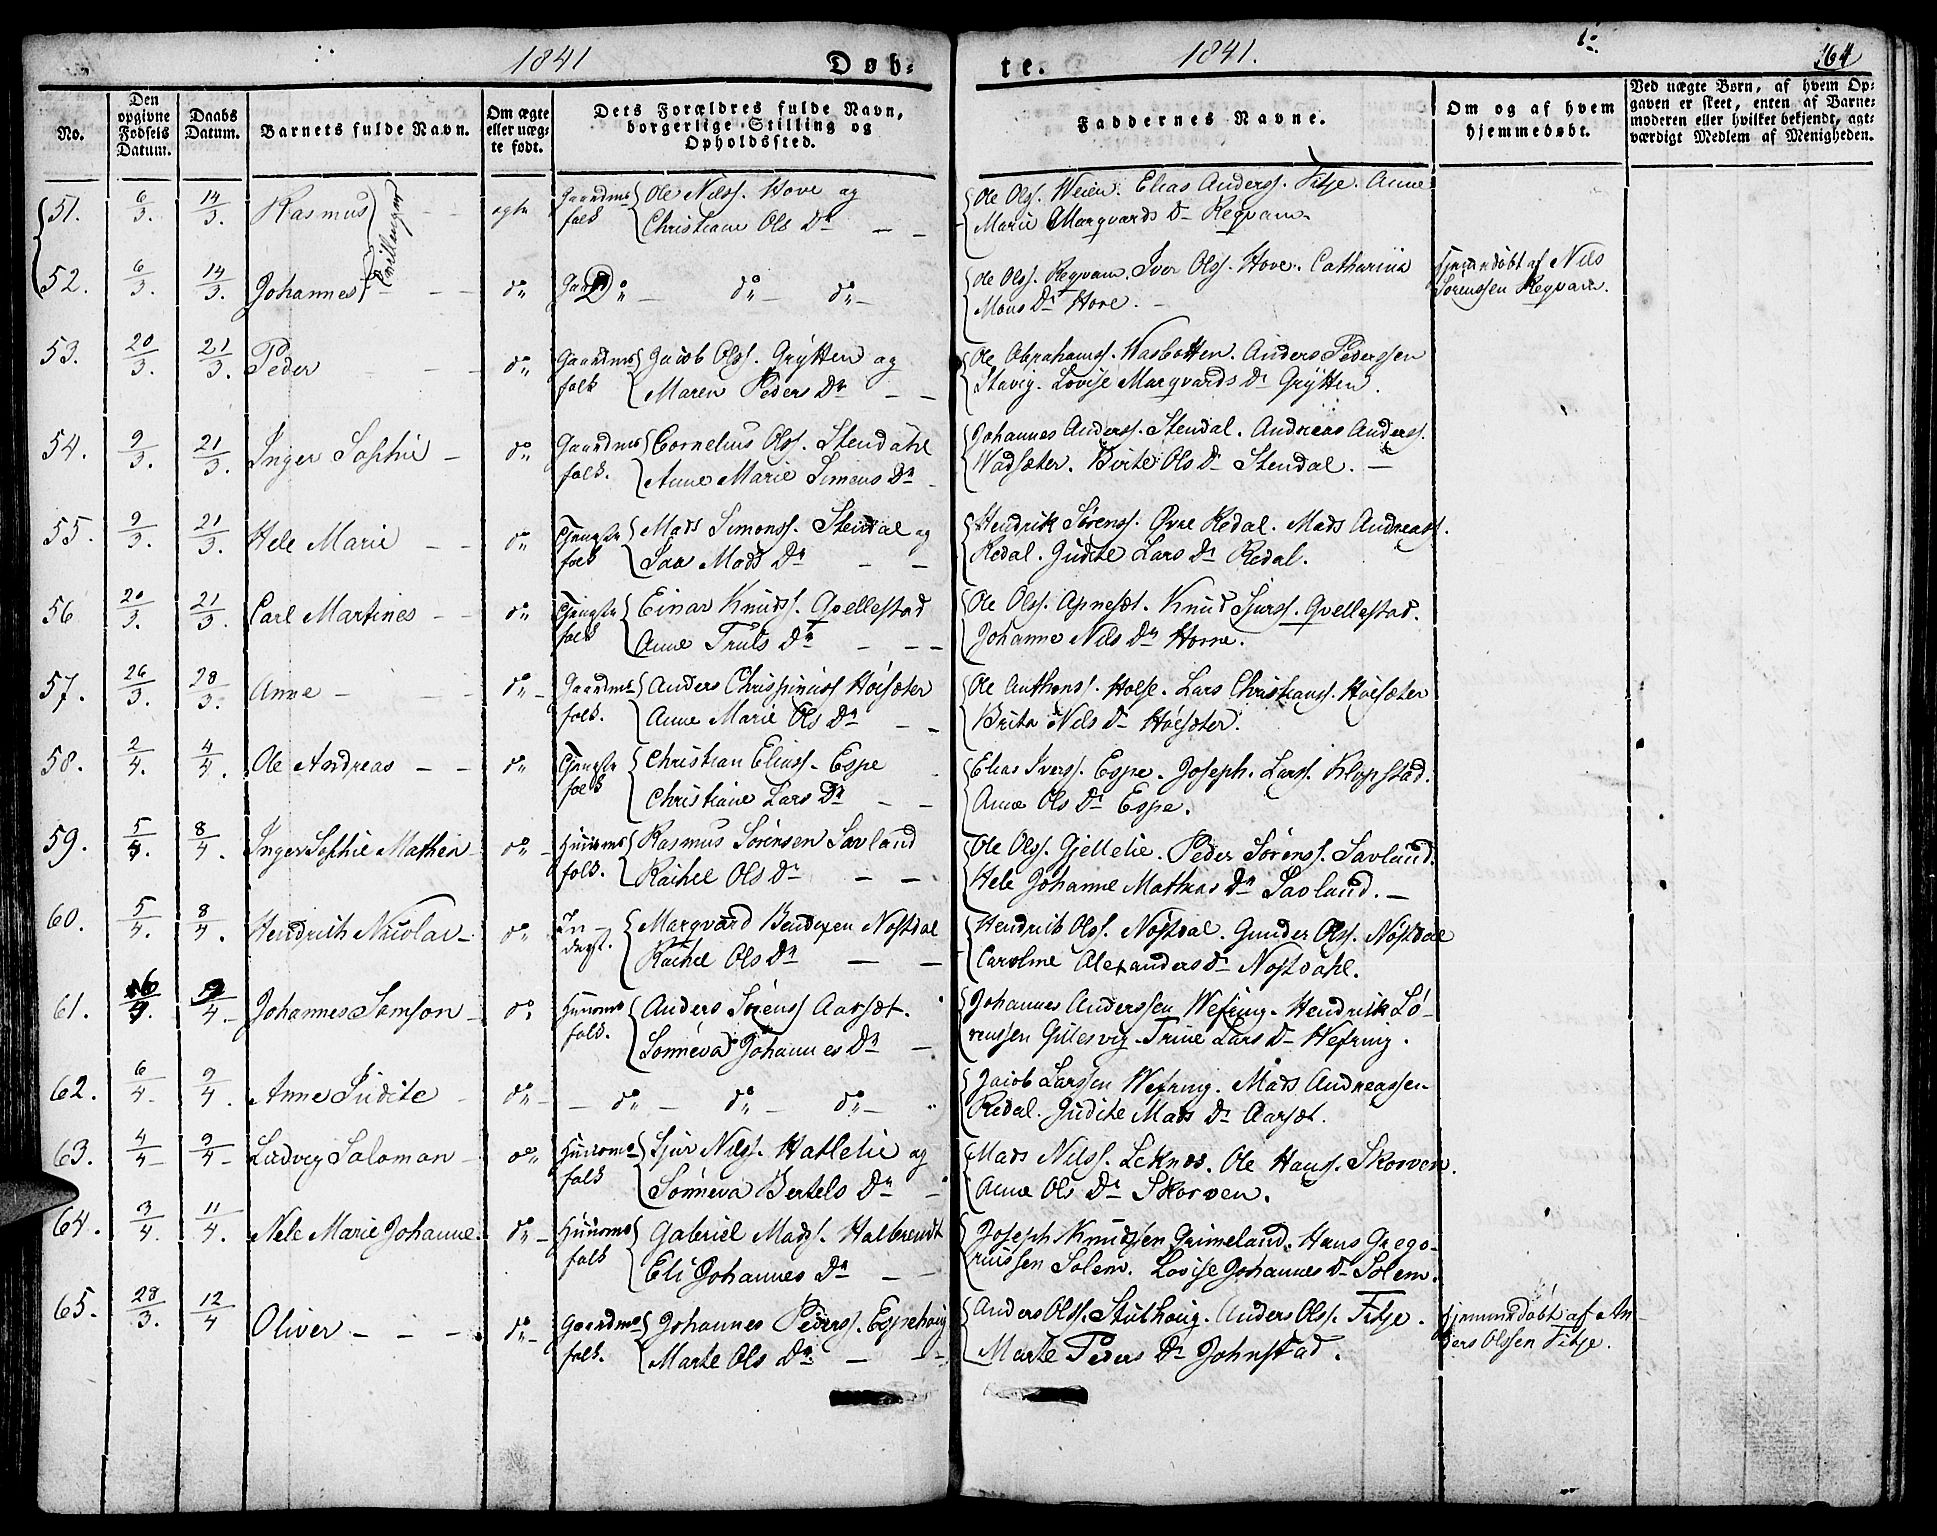 1841
Døb-
te.
1841.
164
No.
Den opgivne Fødsels Datum.
Daabs Datum.
Barnets fulde Navn.
Om ægte eller uægte født.
Dets Forældres fulde Navn, borgerlige Stilling og Opholdssted.
Faddernes Navne.
Om og af hvem hjemmedøbt.
Ved uægte Børn, af hvem Opgaven er skeet, enten af Barnemoderen eller hvilket bekjendt, agtværdigt Medlem af Menigheden.
51. 6/3. 14/3. Rasmus ægte Gaardms folk Ole Nilss. Hove og
Christiane Ols Dr
Ole Olss. Weien. Elias Anderss. Fitje. Anne
Marie Marqvards Dr Reqvam.
Tvillinger
52. 6/3. 14/3. Johannes do do do do
Ole Olss. Reqvam. Iver Olss. Hove. Catharina
Mons Dr Hove.
Hjemmdøbt af Nils
Sørenssen Reqvam.
53. 20/3. 21/3. Peder do Gaardms folk Jacob Olss. Grÿtten og
Maren Peders Dr
Ole Abrahamss. Wasbotten. Anders Pederssen
Stavig. Lovise Marqvards Dr Grÿtten.
54. 9/3. 21/3. Inger Sophie do Gaardms folk. Cornelius Olss. Stendahl
Anne Marie Simens Dr
Johannes Anderss. Stendal. Andreas Anderss.
Wadsæter. Birte Ols Dr Stendal.
55. 9/3. 21/3. Hele Marie do folk Mads Simonss. Stendal og
Mads Dr
Hendrik Sørenss. Øvre Redal. Mads Andreass.
Redal. Judite Lars Dr Redal.
56 20/3. 21/3. Carl Martines do folk Einar Knudss. Qvellestad
Anne Truls Dr
Ole Olss. Knud Sjurss. Qvellestad.
Johanne Nils Dr Horne.
57. 26/3. 28/3. Anne do Gaardms folk. Anders Chrispinuss Høisæter
Anne Marie Ols Dr
Ole Anthonss. Holse. Lars Christianss. Høisæter
Brita Nils Dr Høisæter.
58. 2/4. 4/4. Ole Andreas do folk Christian Eliass. Espe
Christiane Lars Dr
Elias Iverss. Espe. Joseph. Larss. Klopstad.
Anne Ols Dr Espe.
59. 5/4. 8/4. Inger Sophie Mathea do Huusms folk. Rasmus Sørensen Savland
Rachel Ols Dr
Ole Olss. Gjellelie. Peder Sørenss. Savland.
Hele Johanne Mathias Dr Savland.
60. 5/4. 8/4. Hendrik Nicolai do Inderst. Marqvard Bendixen Nøstdal
Rachel Ols Dr
Hendrik Olss. Nøstdal. Gunder Olss. Nøstdal
Caroline Alexanders Dr Nøstdahl.
61. 6/4. 9/4. Johannes Samson do Huusms folk. Anders Sørenss Aarsæt.
Sønneva Johannes Dr
Johannes Anderssen Wefring. Hendrik Sø-
renssen Gillesvig. Trine Lars Dr Wefring.
62. 6/4. 9/4. Anne Judite do do do do
Jacob Larssen Wefring. Mads Andreassen
Redal. Judite Mads Dr Aarsæt.
63. 4/4 9/4 Ludvig Salomon do Huusms folk Sjur Nilss. Hatlelie og
Sønneva Bertels Dr
Mads Nilss. Leknes. Ole Hanss. Skorven.
Anne Ols Dr Skorven.
64. 3/4. 11/4. Nele Marie Johanne. do Huusms folk Gabriel Madss. Halbrendt
Eli Johannes Dr
Joseph Knudssen Grimeland. Hans Grego-
riussen Solem. Lovise Johannes Dr Solem.
65. 28/3. 12/4 Oliver do Gaardms folk. Johannes Pederss. Espehoug
Marte Ols Dr
Anders Olss. Stuthoug. Anders Olss. Fitje.
Marte Peders Dr Johnstad.
Hjemmedøbt af An-
ders Olssen Fitje.